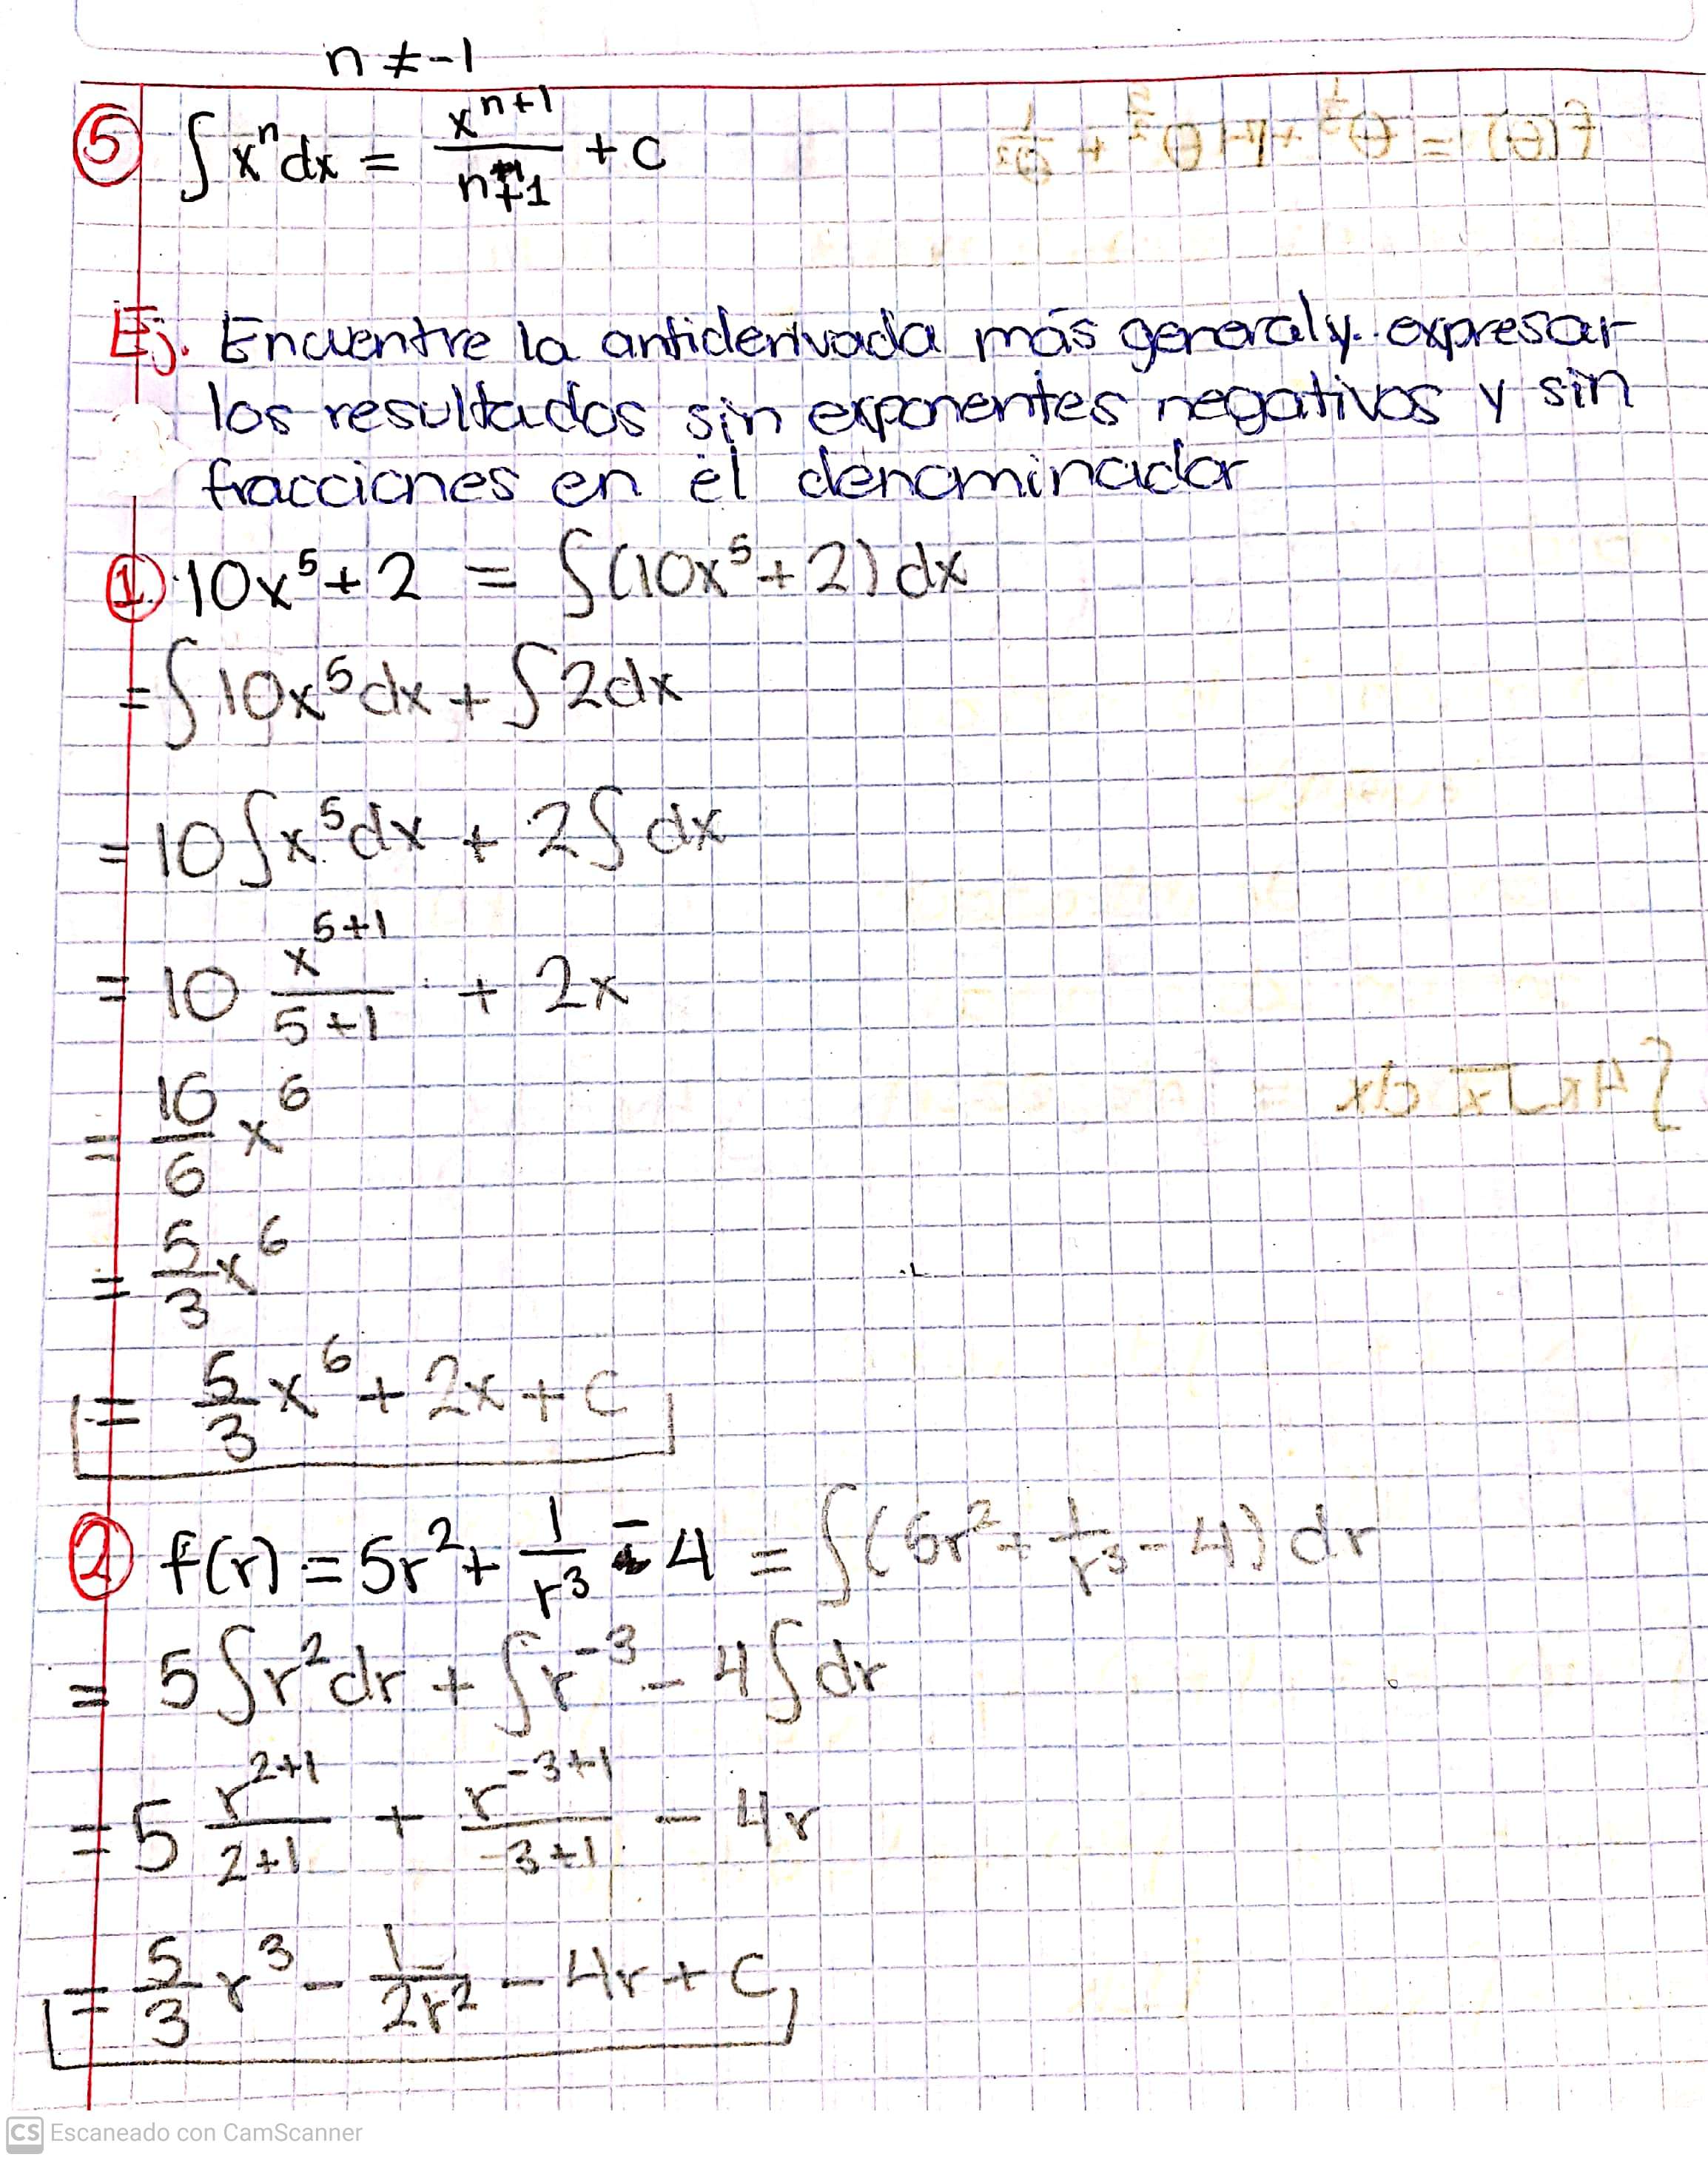 n ≠ -1
⑤ ∫ xⁿ dx = xⁿ⁺¹ / n+1 + c
Ej. Encuentre la antiderivada más general y. expresar
los resultados sin exponentes negativos y sin
fracciones en el denominador
①. 10x⁵ + 2 = ∫(10x⁵ + 2) dx
= ∫ 10x⁵ dx + ∫ 2dx
= 10 ∫ x⁵ dx + 2 ∫ dx
= 10 x⁵⁺¹ / 5+1 + 2x
= 10/6 x⁶
= 5/3 x⁶
= 5/3 x⁶ + 2x + C
② f(r) = 5r² + 1/r³ - 4 = ∫(5r² + 1/r³ - 4) dr
= 5 ∫ r² dr + ∫ r⁻³ - 4 ∫ dr
= 5 r²⁺¹ / 2+1 + r⁻³⁺¹ / -3+1 - 4r
= 5/3 r³ - 1/2r² - 4r + C
CS Escaneado con CamScanner